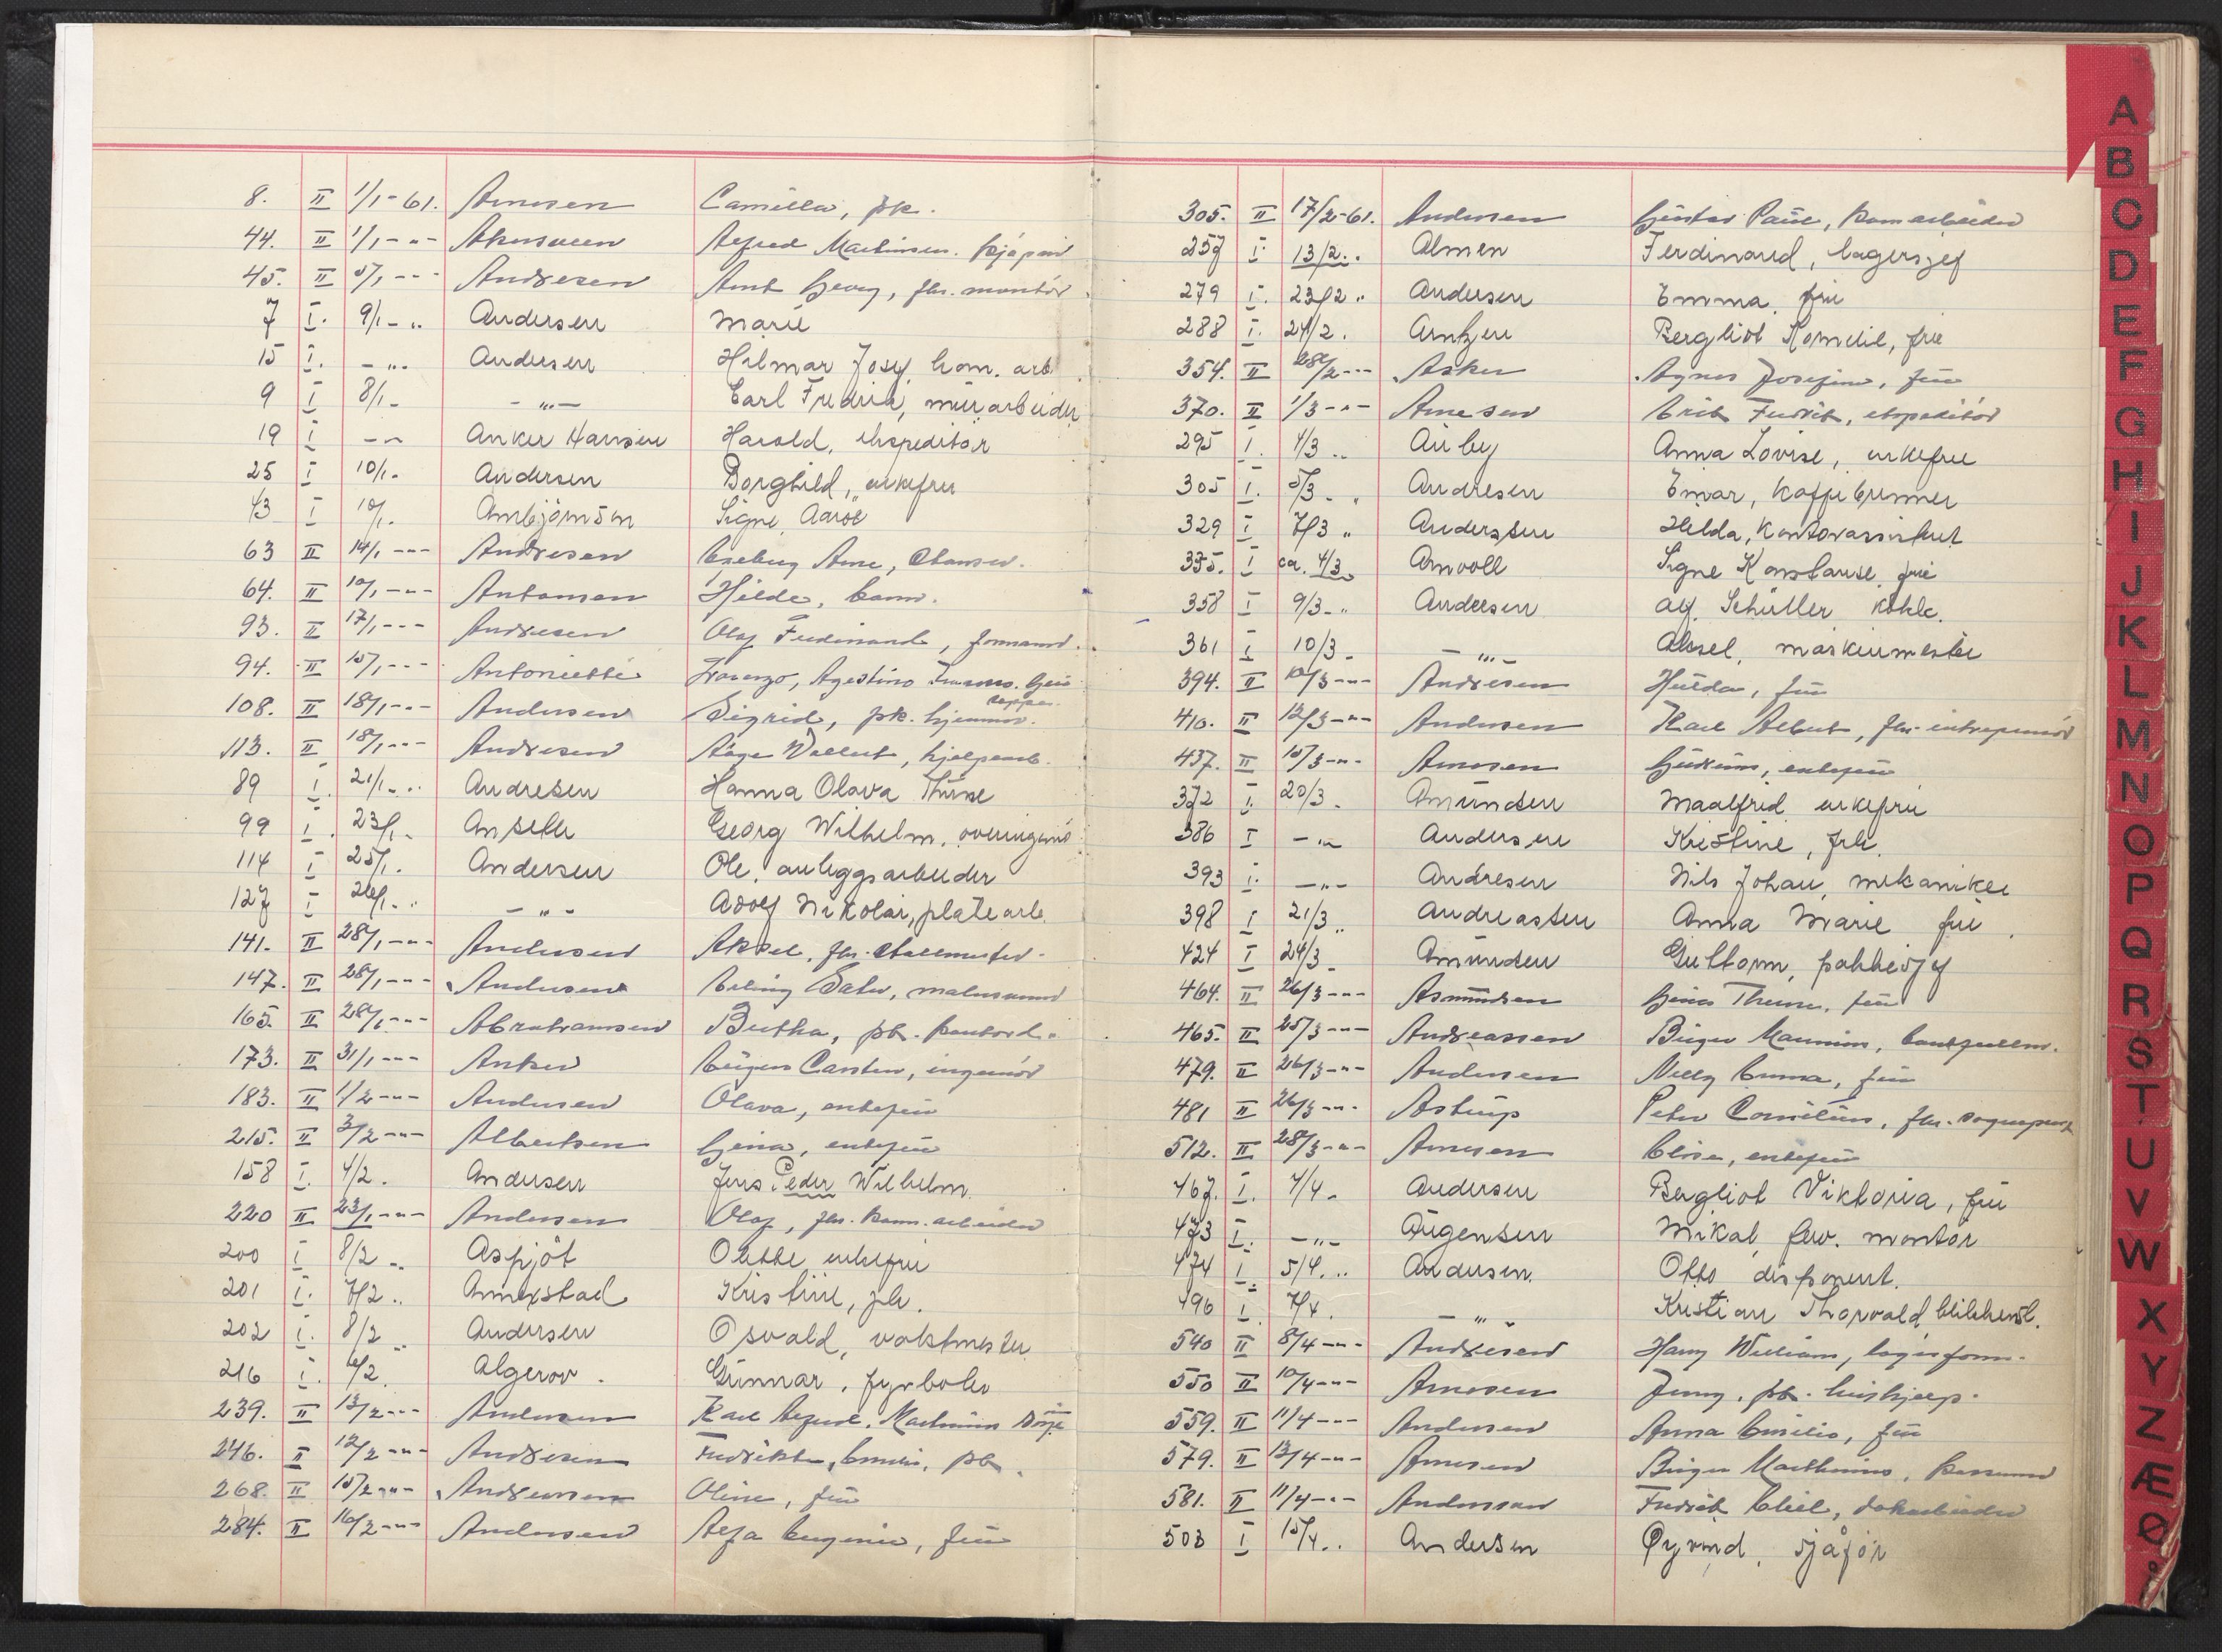 8. II 1/1-61. Arnesen Camilla, pk.
44. II 1/1-"- Alfred Martinsen.
45. II 5/1-"- Andresen Arnt Georg, fhr. montör
7 I. 9/1-" Andersen Marie
15 I. -"- Andersen Hilmar Josef, kom. arb
9 I 8/1- -"- Carl Fredrik, murarbeider
19 I -"- Anker Hansen Harald, ekspeditör
25 I 10/1- Andersen Borghild, enkefru
43 I 10/1- Arnbjörnsen Signe Aaroe
63 II 14/1-"- Andresen Arne,
64. II 10/1-"- Antonsen Hilde,
93. II 17/1-"- Andresen Olaf Ferdinand, formann.
94. II 15/1-"- Antonietti Lorenzo, Agostino
108. II 18/1-"- Andersen Sigrid, pk.
113. II 18/1-"- Andresen Aage hjelpearb.
89 I. 21/1-" Andresen Hanna Olava Thime
99 I. 23/1- Georg Wilhelm, overingeniö
114 I 25/1. Andersen Ole, anleggsarbeider
127 I 26/1-" -"- Adolf Nikolai, platearb.
141. II 28/1-"- Andersen Aksel, fhr. stallmester.
147. II 28/1-"- Andersen Erling malersvend
165. II 28/1-"- Abrahamsen Bertha, pk. kontord.
173. II 31/1-"- Anker Carsten, ingeniör
183. II 1/2-"- Andersen Olava, enkefru
215. II 3/2-"- Albertsen Gina, enkefru
158 I. 4/2. Andersen Jens Peder Wilhelm
220 II 23/1-"- Andersen Olaf, fhr. komm. arbeider
200 I 8/2 " Aspjöt Olette enkefru
201 I. 7/2 " Kristine, fh.
202 I. 8/2 " Andersen Osvald, vaktmester
216 I. 6/2. Algerov. Gunnar, fyrböter
239. II 13/2-"- Andersen Karl
246. II 12/2-"- Andresen Fredrikke, pk.
268. II 15/2-"- Oline, fru
284. II 16/2-"- Andersen Alfa Eugenie, fru
305. II 17/2-61. Andersen Gustav Paul, komarbeider
257 I 13/2 " Almen Ferdinand, lagersjef
279 I. 23/2 " Andersen Emma, fru
288 I. 24/2. Arntzen Bergliot Komelie, fru
354. II 28/2-"- Asker Agnes Josefine, fru
370. II 1/3-"- Arnesen Erik Fredrik, ekspeditör
295 I. 4/3 " Auby Anna Lovise, enkefru
305 I. 5/3 " Andresen Einar, kaffebrenner
329 I 7/3 " Anderssen Hilda, Kontorassistent
335. I ca. 4/3 Arnvoll Signe Konstanse, fru
358 I 9/3-" Andersen Alf. Schüller
361 I 10/3 - -"- Aksel, maskinmester
394. II 10/3-"- Andresen Hulda, fru
410. II 12/3-"- Andersen Karl Albert, fhr. entreprenör
437. II 15/3-"- Arnesen enkefru
372 I. 20/3 - Amundsen Maalfrid enkefru
386 I -"- Andersen Kristine, frk.
393 I. -"- Andresen Nils Johan, mekaniker
398 I 21/3 " Andreassen Anna Marie fru
424 I 24/3 - Amundsen Guttorm, pakkesjef
464. II 26/3-"- Asmundsen fru
465. II 25/3-"- Andreassen Birger
479. II 26/3-"- Andersen Nelly Emma, fru
481 II 26/3-"- Astrup Peter Cornelius,
512. II 28/3-"- Arnesen Elise, enkefru
467. I. 4/4- Andersen Bergliot Viktoria, fru
473 I. -"- Augensen Mikal, fhv. montör
474 I. 5/4 " Andersen Otto disponent.
496 I. 7/4. -"- Kristian Thorvald
540 II 8/4-"- Andresen Harry William, lagerform.
550 II 10/4-"- Arnesen Jenny, pk. hushjelp.
559. II 11/4-"- Andersen Anna Emilie, fru
579. II 13/4-"- Arnesen Birger
581. II 11/4-"- Anderssen Fredrik
503 I 15/4 " Andersen Øyvind, sjåför
A
B
C
D
E
F
G
H
I
J
K
L
M
N
O
P
Q
R
S
T
U
V
W
X
Y
Z
Æ
Ø
Å